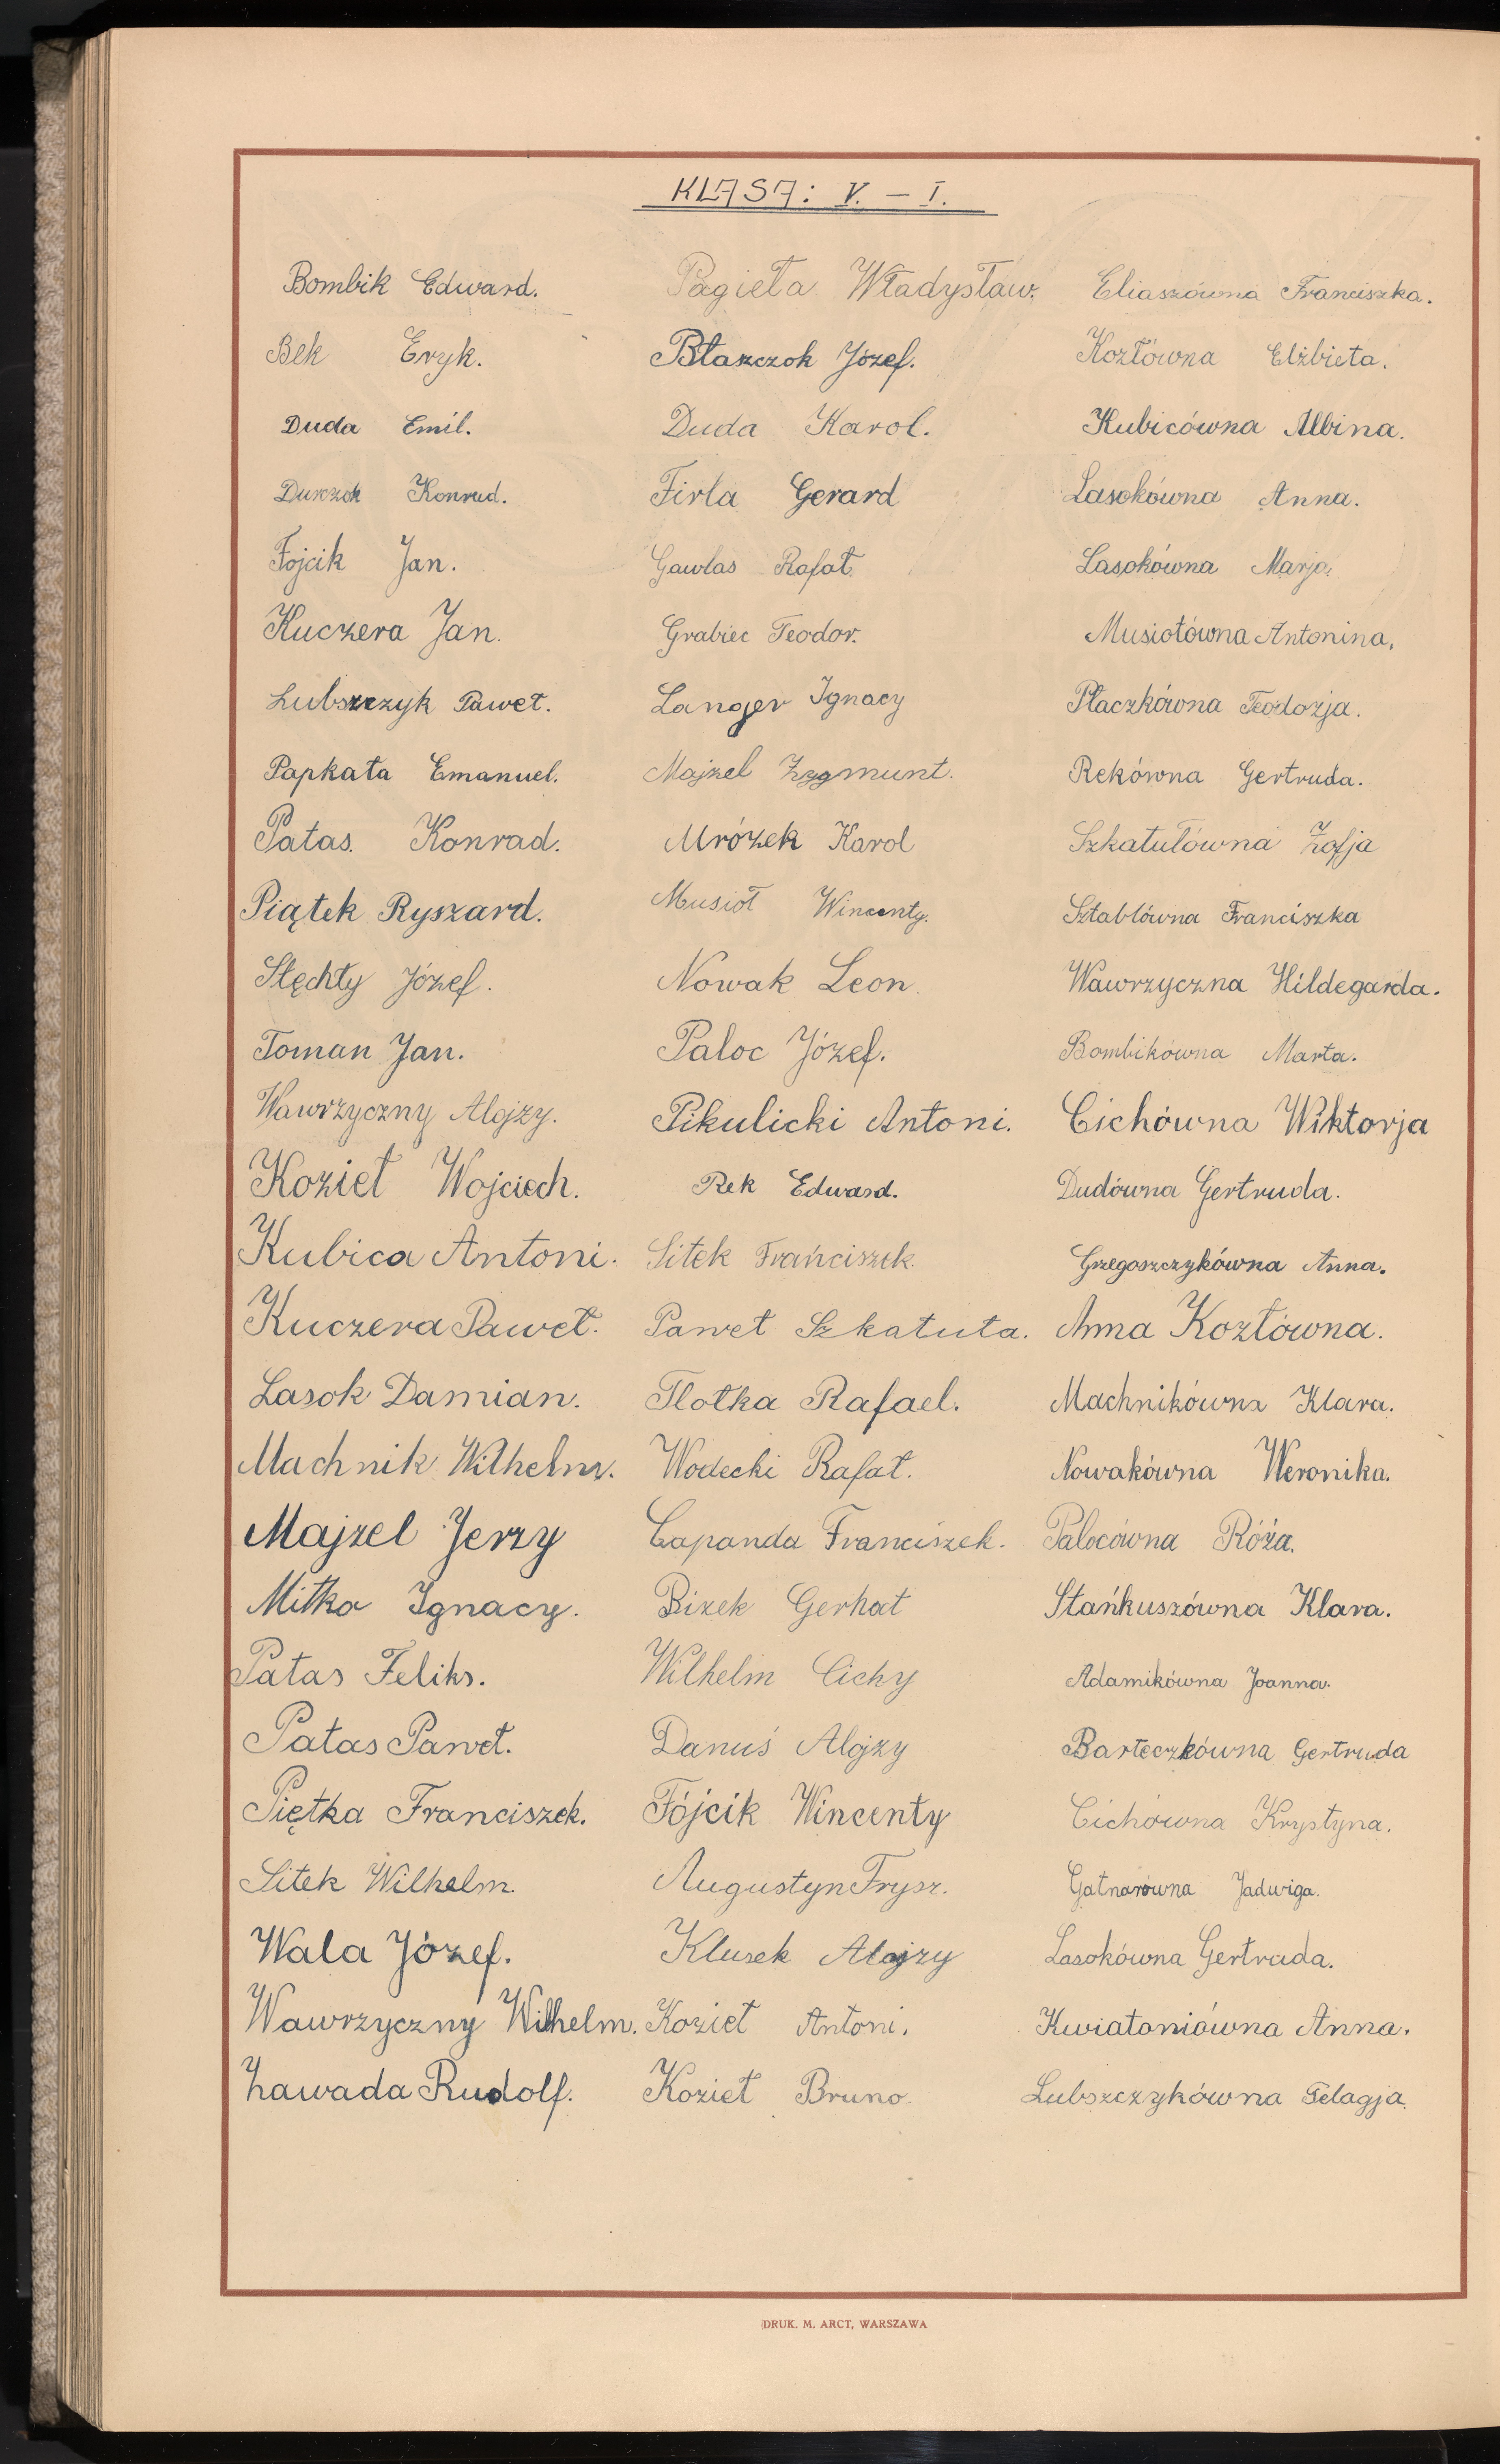 KLASA: V. – I.
Bombik Edward.
Bek Eryk.
Duda Emil.
Durczok Konrad.
Fojcik Jan.
Kuczera Jan.
Lubszczyk Paweł.
Papkała Emanuel.
Patas. Konrad.
Piątek Ryszard.
Stęchły Józef.
Toman Jan.
Wawrzyczny Alojzy.
Kozieł Wojciech.
Kubica Antoni.
Kuczera Paweł.
Lasok Damian.
Machnik Wilhelm.
Majzel Jerzy
Mitko Ignacy.
Patas Feliks.
Patas Paweł.
Piętka Franciszek.
Sitek Wilhelm.
Wala Józef.
Wawrzyczny Wilhelm.
Zawada Rudolf.
Pagieła Władysław.
Błaszczok Józef.
Duda Karol.
Firla Gerard
Gawlas Rafał.
Grabiec Teodor.
Langer Ignacy
Majzel Zygmunt.
Mrózek Karol
Musioł Wincenty.
Nowak Leon.
Paloc Józef.
Pikulicki Antoni.
Rek Edward.
Sitek Frańciszek.
Paweł Szkatuła.
Tlołka Rafael.
Wodecki Rafał.
Capanda Franciszek.
Bizek Gerhat
Wilhelm Cichy
Danuś Alojzy
Fójcik Wincenty
Augustyn Frysz.
Klusek Alojzy
Kozieł Antoni.
Kozieł Bruno.
Eliaszówna Franciszka.
Kozłówna Elżbieta.
Kubicówna Albina.
Lasokówna Anna.
Lasokówna Marja.
Musiołówna Antonina.
Płaczkówna Teodozja.
Rekówna Gertruda.
Szkatułówna Zofja
Sztablówna Franciszka
Wawrzyczna Hildegarda.
Bombikówna Marta.
Cichówna Wiktorja
Dudówna Gertruda.
Grzegoszczykówna Anna.
Anna Kozłówna.
Machnikówna Klara.
Nowakówna Weronika.
Palocówna Róża.
Stańkuszówna Klara.
Adamikówna Joanna.
Barteczkówna Gertruda
Cichówna Krystyna.
Gatnarówna Jadwiga.
Lasokówna Gertruda.
Kwiatoniówna Anna.
Lubszczykówna Pelagja.
DRUK. M. ARCT, WARSZAWA